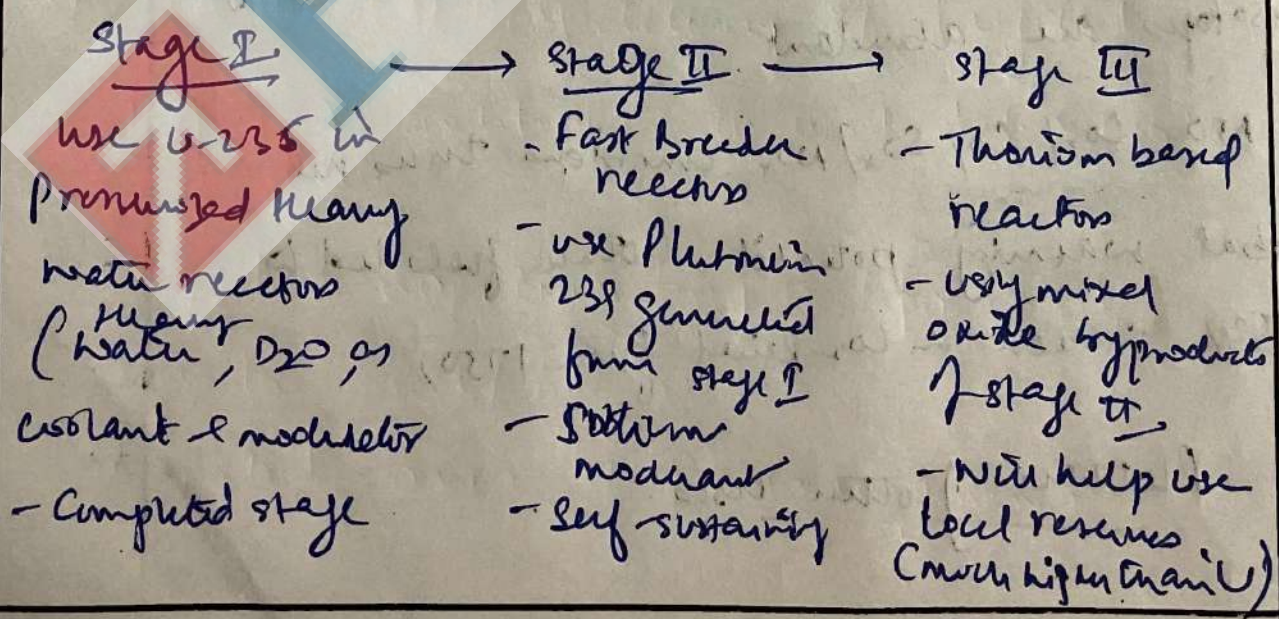 Stage I → Stage II → Stage III
Use U-235 in
Pressurized Heavy
water reactors
(Heavy water, D2O, as
coolant & modulator
- Completed stage
- Fast Breeder
reactors
- use Plutonium
239 generated
from stage I
- Sodium
moderant
- Self-sustaining
- Thorium based
reactors
- using mixed
oxide byproducts
of stage II
- will help use
local reserves
(much higher than U)